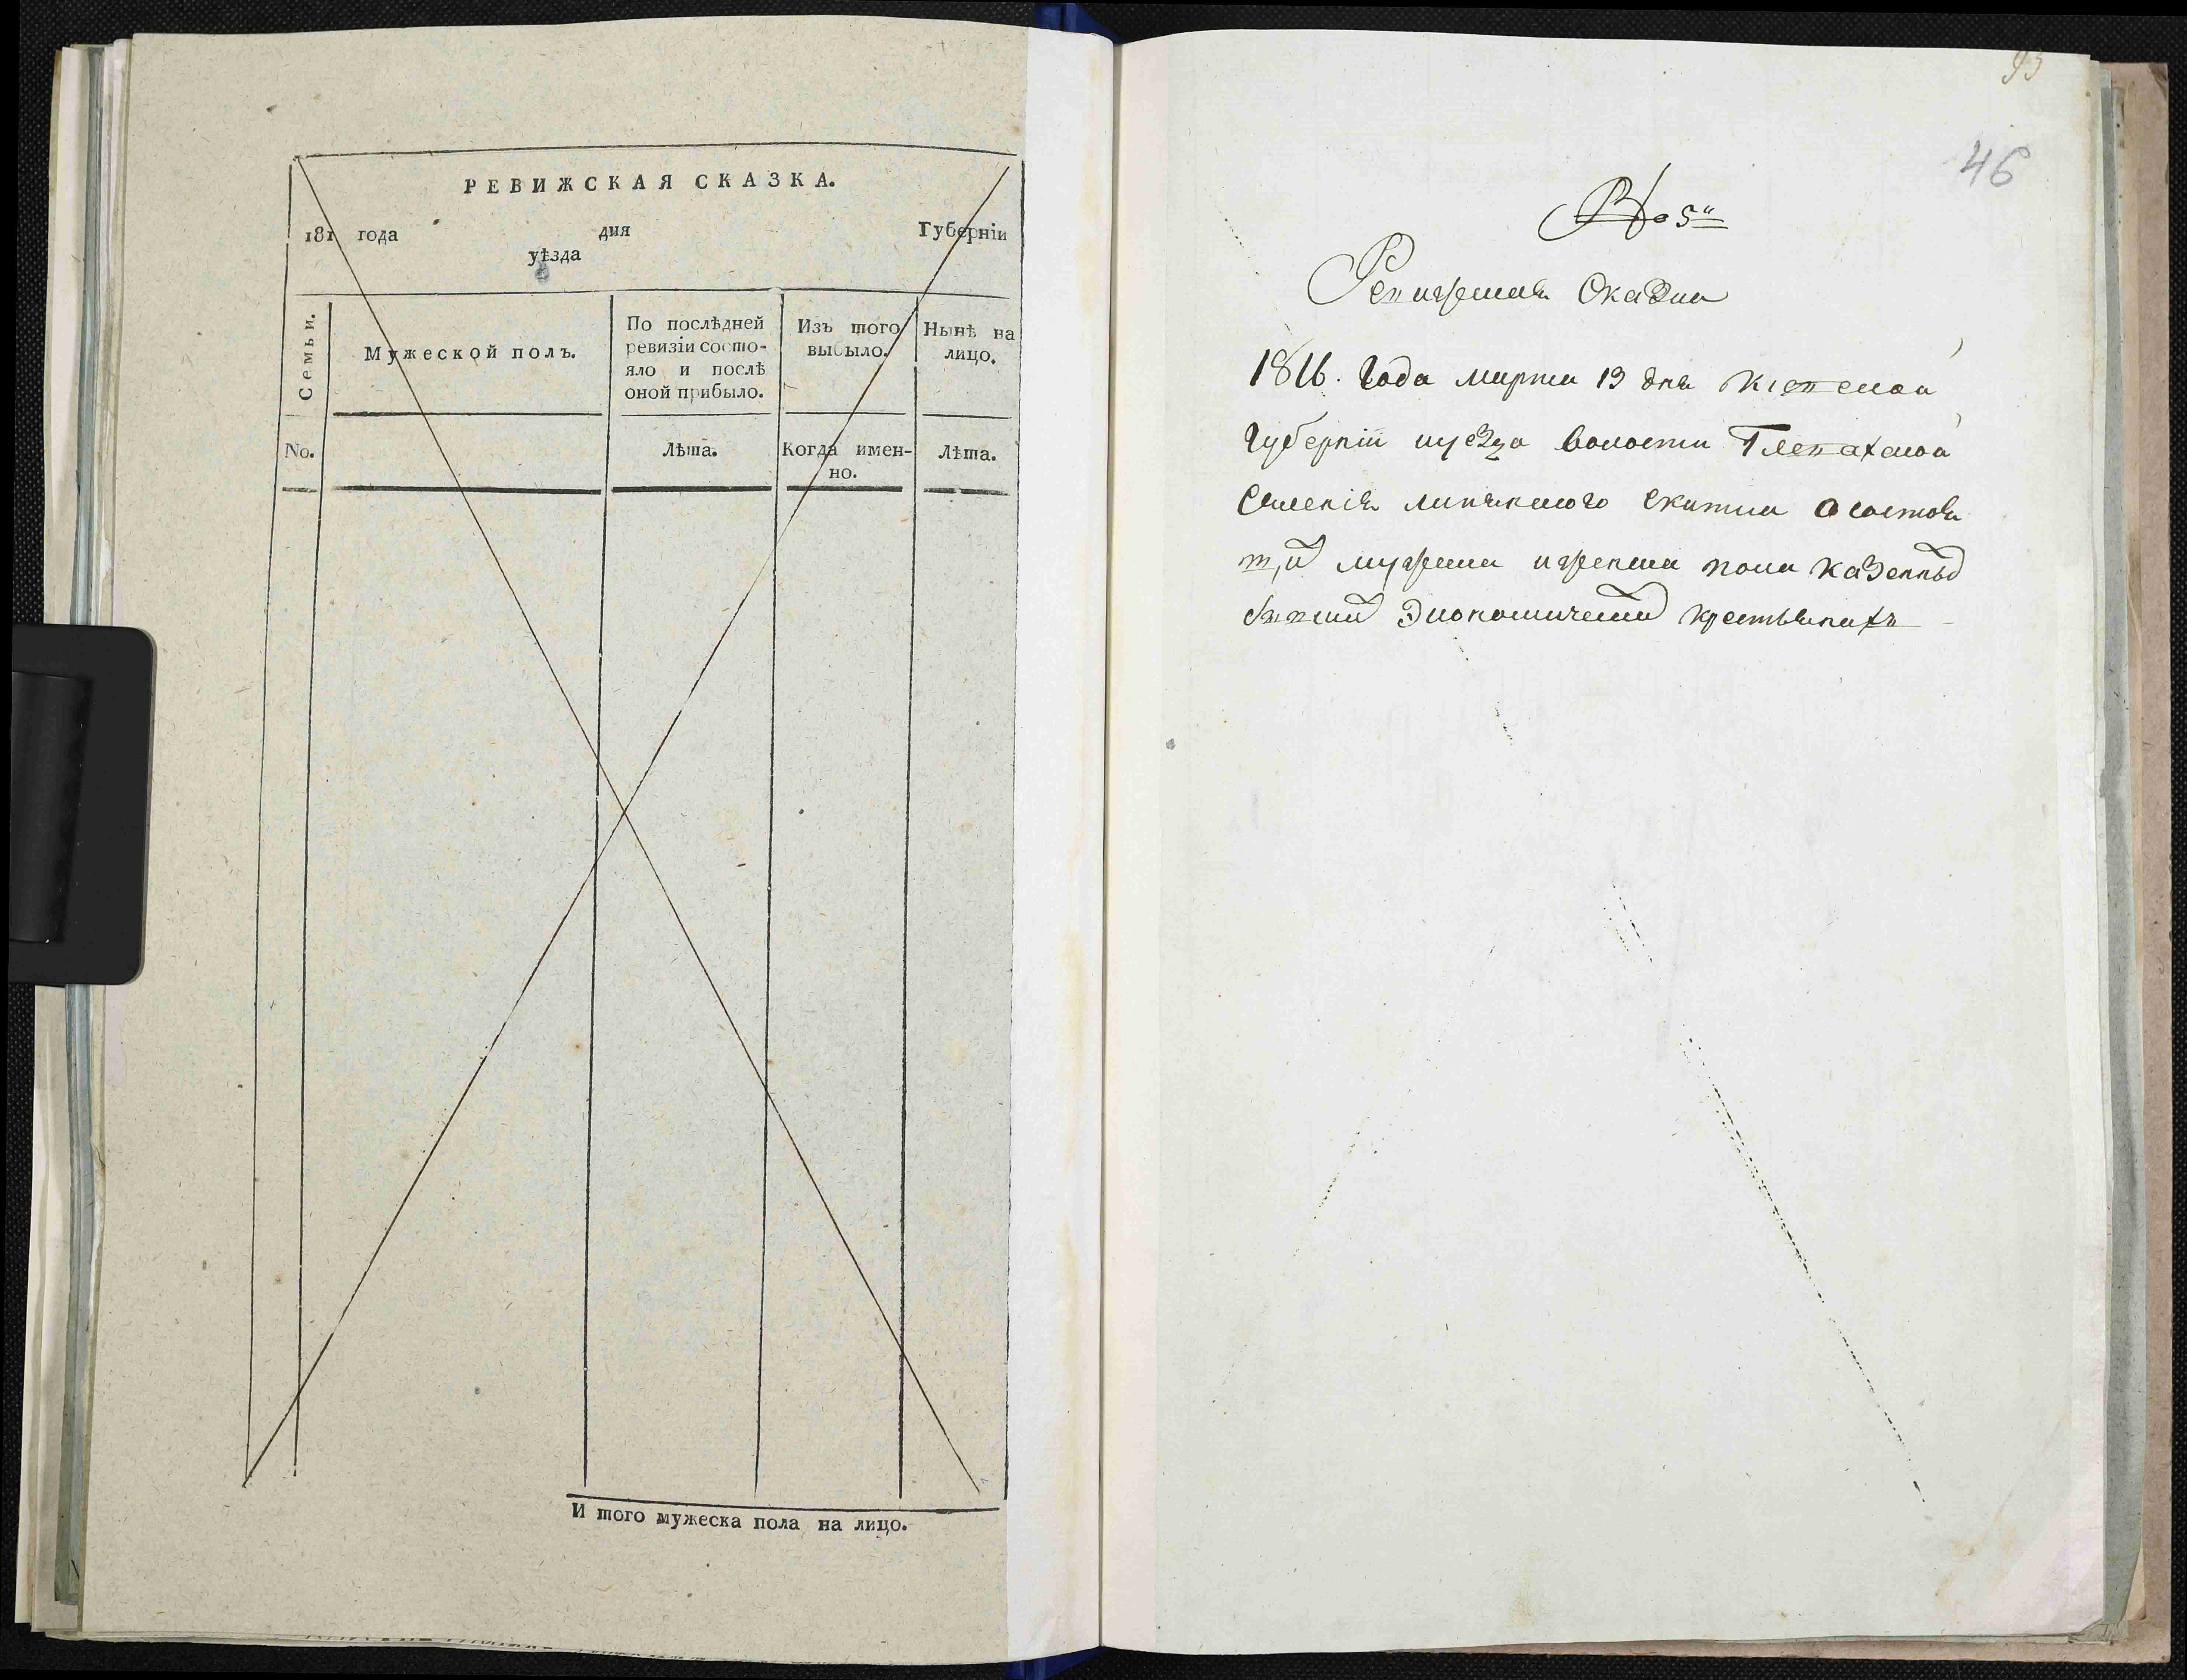 РЕВИЖСКАЯ СКАЗКА.
181 года дня Губерніи
уѣзда
Семьи.
Мужеской полъ.
По послѣдней
ревизіи состо-
яло и послѣ
оной прибыло.
Изъ того
выбыло.
Нынѣ на
лицо.
No.
Лѣта.
Когда имен-
но.
Лѣта.
И того мужеска пола на лицо.
46
No 5й
Ревижская Сказка
1816. Года марта 13 дня Киевской
Губерніи уезда волости Глевахской
Селенія скитка О состоя
щих мужеска иженска пола казенных
бывших Экономических крестьянахъ